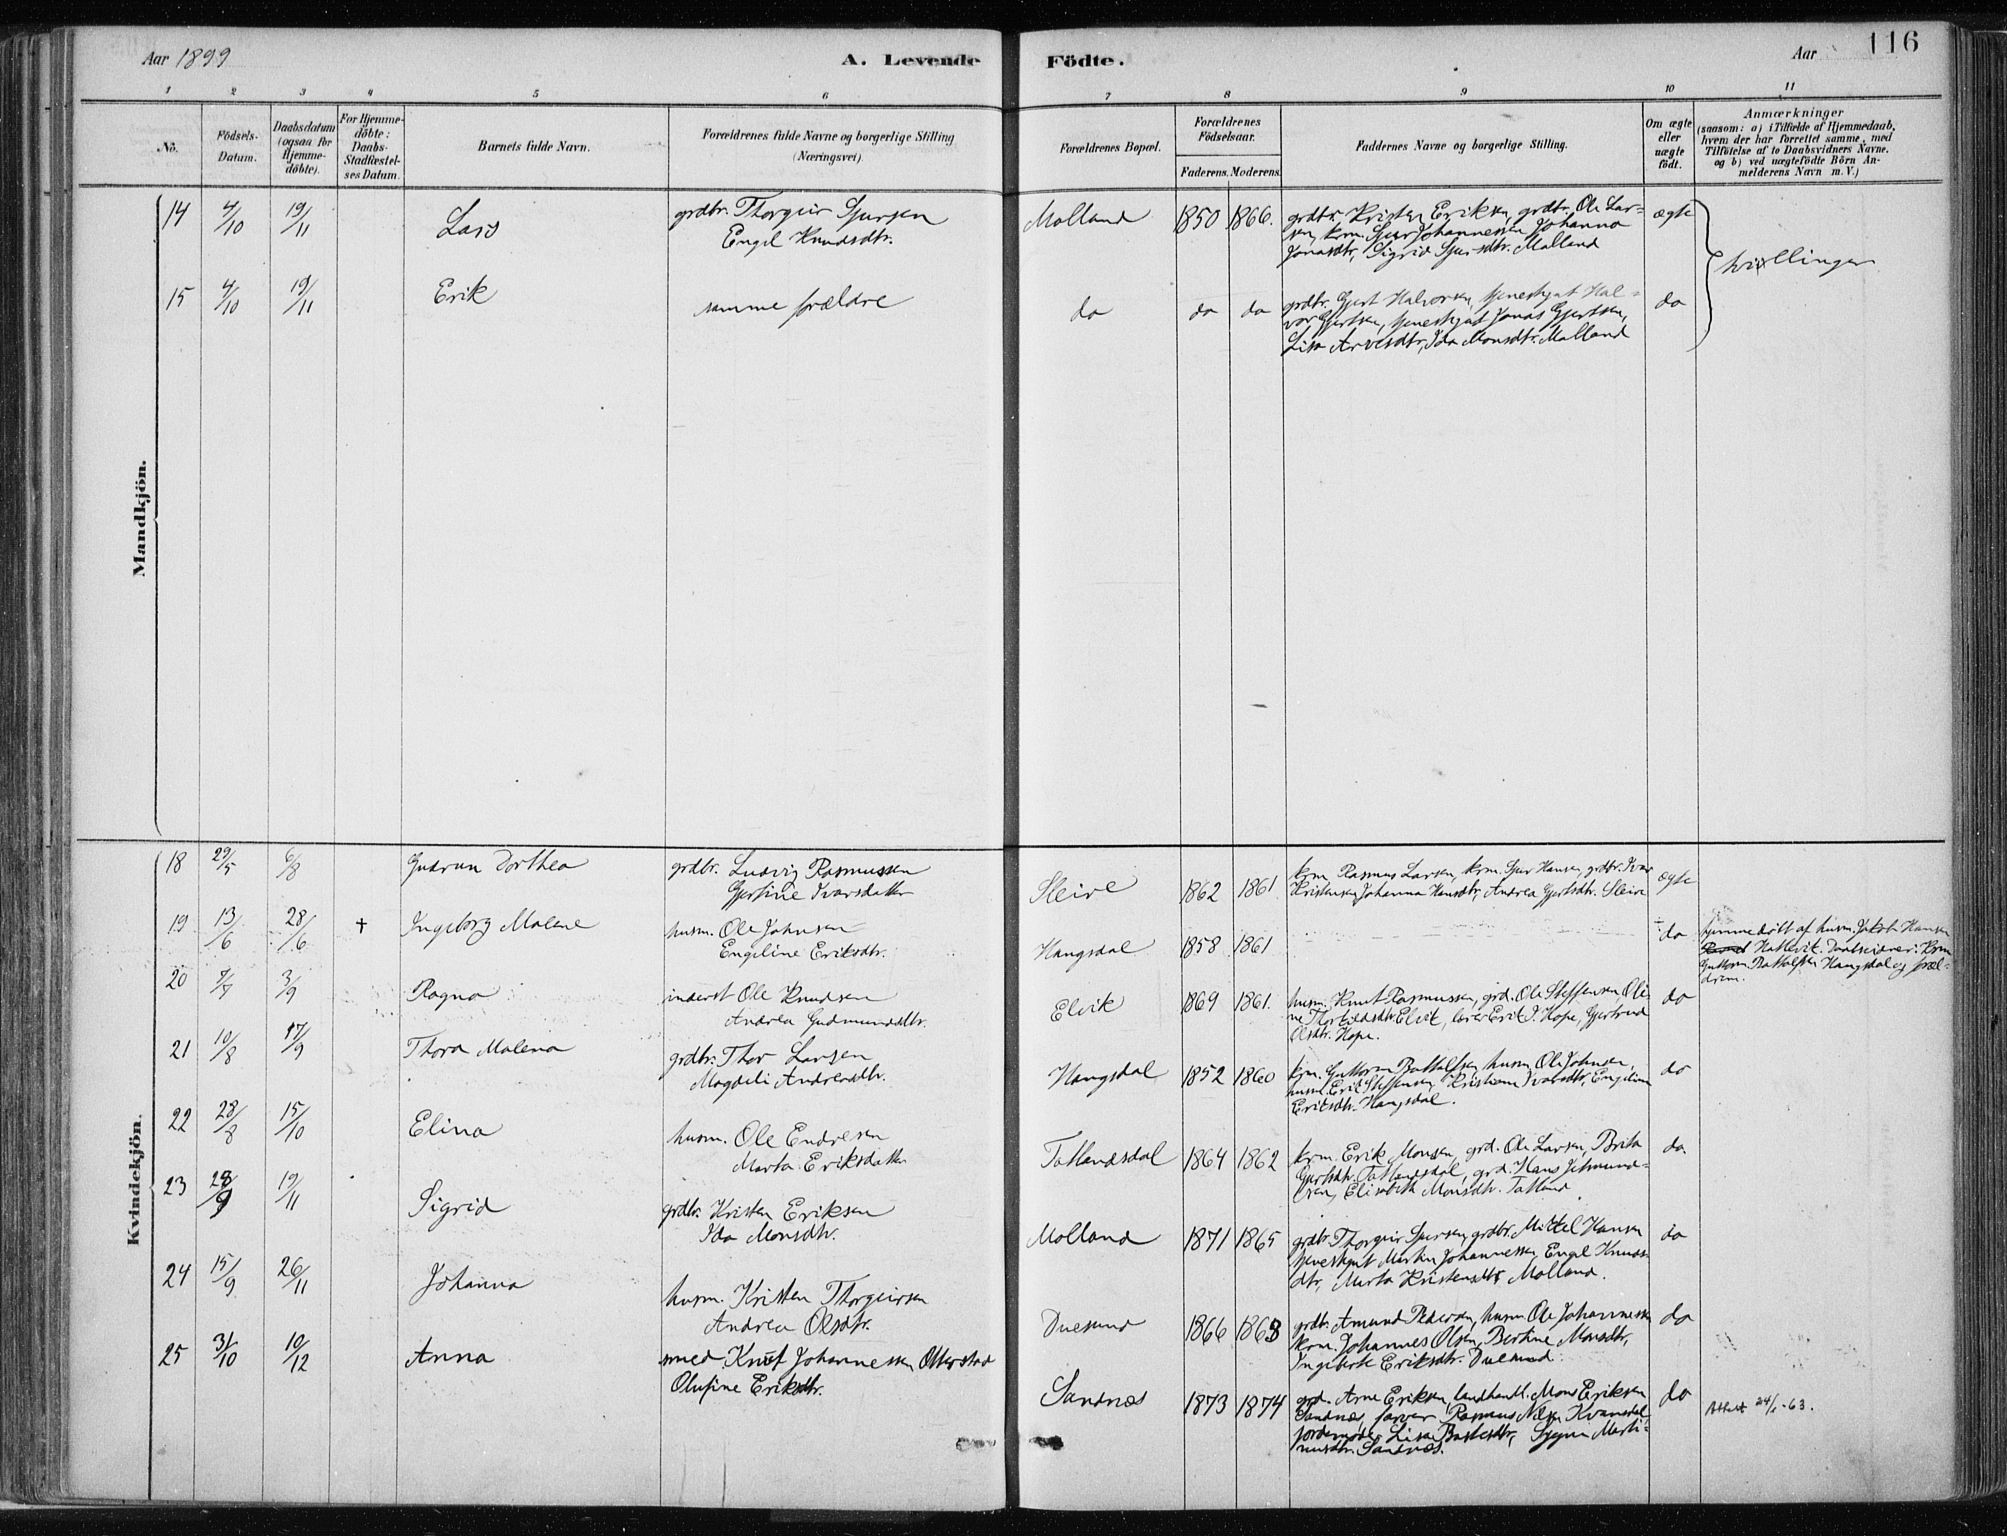 Aar 1899
A. Levende Födte.
Aar
116
1 2 3 4 5 6 7 8 9 10 11
No.
Födsels-
Datum.
Daabsdatum
(ogsaa for
Hjemme-
döbte).
For Hjemme-
döbte:
Daabs-
Stadfæstel-
ses Datum.
Barnets fulde Navn.
Forældrenes fulde Navne og borgerlige Stilling
(Næringsvei).
Forældrenes Bopæl.
Forældrenes
Födselsaar.
Faderens. Moderens.
Faddernes Navne og borgerlige Stilling.
Om ægte
eller
uægte
födt.
Anmærkninger
(saasom: a) i Tilfælde af Hjemmedaab,
hvem der har forrettet samme, med
Tilföielse af to Daabsvidners Navne.
og b) ved uægtefödte Börn An-
melderens Navn m. V.)
Mandkjön.
14 4/10 19/11 Lars grdbr. Thorgeir Sjursen
Engel Knudsdtr.
Molland 1850 1866.
grdbr. Kristen Eriksen, grdbr. Ole Lar-
sen, krm. Sjur Johannessen Johanna
Jonasdtr, Sigrid Sjursdtr. Molland
ægte
tvillinger
15 4/10 19/11 Erik samme forældre
do do do
grdbr. Gjert Halvorsen, tjenestgut Hal-
vor Gjertsen, tjenestgut Jonas Gjertsen,
Lisa Arvesdtr, Ida Monsdtr. Molland
do
Kvindekjön.
18 29/5 6/8 Gudrun Dorthea grdbr. Ludvig Rasmussen
Gjertine Ivarsdatter
Sleire 1862 1861
krm Rasmus Larsen, krm. Sjur Hansen, grdbr. Ivar
Kristensen Johanna Hansdtr, Andrea Gjertsdtr. Sleire
ægte
19 13/6 28/6 † Ingeborg Malene husm. Ole Johnsen
Engeline Eriksdtr.
Haugsdal 1858 1861
do
hjemmedøbt af husm. Jakob Hansen
Hattevik. Daabsvidner: krm
Guttorm Haugsdal og foræl-
drene.
20 9/7 3/9 Ragna inderst Ole Knudsen
Andrea Gudmundsdtr.
Elvik 1869 1861.
husm. Knut Rasmussen, grd. Ole Steffensen, Oli-
ne Elvik, lærer Erik J. Hope, Gjertrud
Olsdtr. Hope.
do
21 10/8 17/9 Thora Malena grdbr. Thor Larsen
Magdeli Andreasdtr.
Haugsdal 1852 1860
krm. Guttorm husm Ole Johnsen,
husm. Erik Steffensen Kristiane Ivarsdtr, Engeline
Eriksdtr. Haugsdal.
do
22 28/8 15/10 Elina husm. Ole Endresen
Marta Eriksdatter
Totlandsdal 1864 1862
krm. Erik Monsen, grd. Ole Larsen, Brita
Gjertsdtr. Totlandsdal, grd. Hans Jetmund-
sen, Elisabeth Monsdtr. Totland
do.
23 28/9 19/11 Sigrid grdbr. Kristen Eriksen
Ida Monsdtr.
Molland 1871 1865
grdbr. Thorgeir Sjursen, grdbr. Mikkel Hansen
tjenestgut Martin Johannessen, Engel Knuds-
dtr, Marta Kristensdtr Molland.
do
24 15/9 26/11 Johanna husm. Kristen Thorgeirsen
Andrea Olsdtr.
Duesund 1866 1863
grdbr. Amund Pedersen, husm Ole Johannessen
krm. Johannes Olsen, Bertine Monsdtr,
Ingeborg Eriksdtr. Duesund.
do
25 31/10 10/12 Anna smed Knut Johannessen Otterstad
Olufine Eriksdtr.
Sandnæs 1873 1874
grd. Arne Eriksen, landhandl. Mons Eriksen
Sandnæs, farver Rasmus Nilsen Kvamsdal
jordemoder Lisa Sygna Marti-
nusdtr. Sandnæs.
do
Attest 24/1-63.